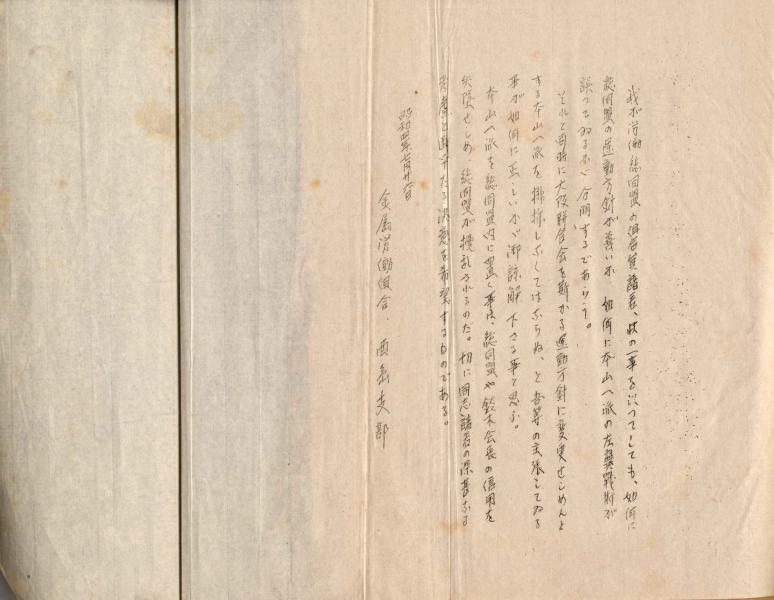 我が労働総同盟の組合員諸君、此の一事を以つてしても、如何に
総同盟の運動方針が善いか 如何に本山一派の左翼戦術が
誤つてゐるか 分明するであらう。
それと同時に大阪聯合会を斯かる運動方針に変更せしめんと
する本山一派を排撃しなくてはならぬ、と吾等の主張してゐる
事が如何に正しいか 御諒解下さる事と思ふ。
本山一派を総同盟内に置く事は、総同盟や鈴木会長の信用を
失墜せしめ、総同盟が攪乱されるのだ。切に同志諸君の深甚なる
考慮と断乎たる決意を希望するものである。
昭和四年七月廿六日
金属労働組合 西島支部